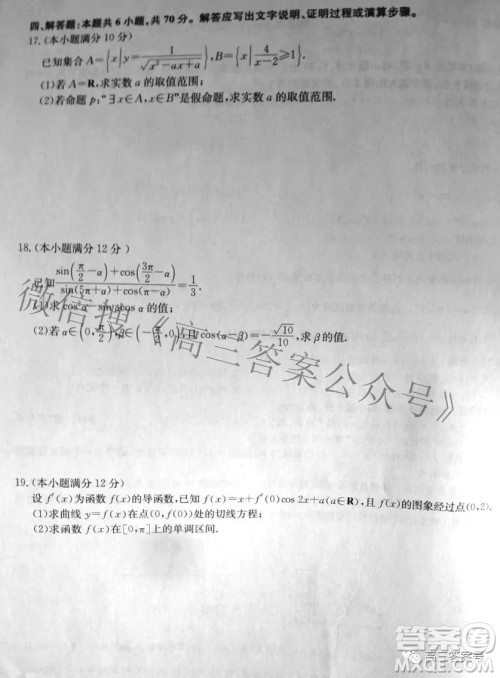 四、解答题:本题共6小题,共70分。解答应写出文字说明、证明过程或演算步骤。
17.(本小题满分10分)
已知集合A={x|y=1/√(x²-ax+a)},B={x|4/(x-2)≥1}.
(1)若A=R,求实数a的取值范围;
(2)若命题p:“∃x∈A,x∈B”是假命题,求实数a的取值范围.
18.(本小题满分12分)
已知 (sin(π/2-α)+cos(3π/2-α))/(sin(5π+α)+cos(π-α))=1/3.
(1)求cos²α-sinαcosα的值;
(2)若α∈(0,π/2),β∈(-π/2,0),且cos(α-β)=-√10/10,求β的值.
19.(本小题满分12分)
设f′(x)为函数f(x)的导函数,已知f(x)=x+f′(0)cos 2x+a(a∈R),且f(x)的图象经过点(0,2).
(1)求曲线y=f(x)在点(0,f(0))处的切线方程;
(2)求函数f(x)在[0,π]上的单调区间.
微信搜《高三答案公众号》
高三答案号
答案圈